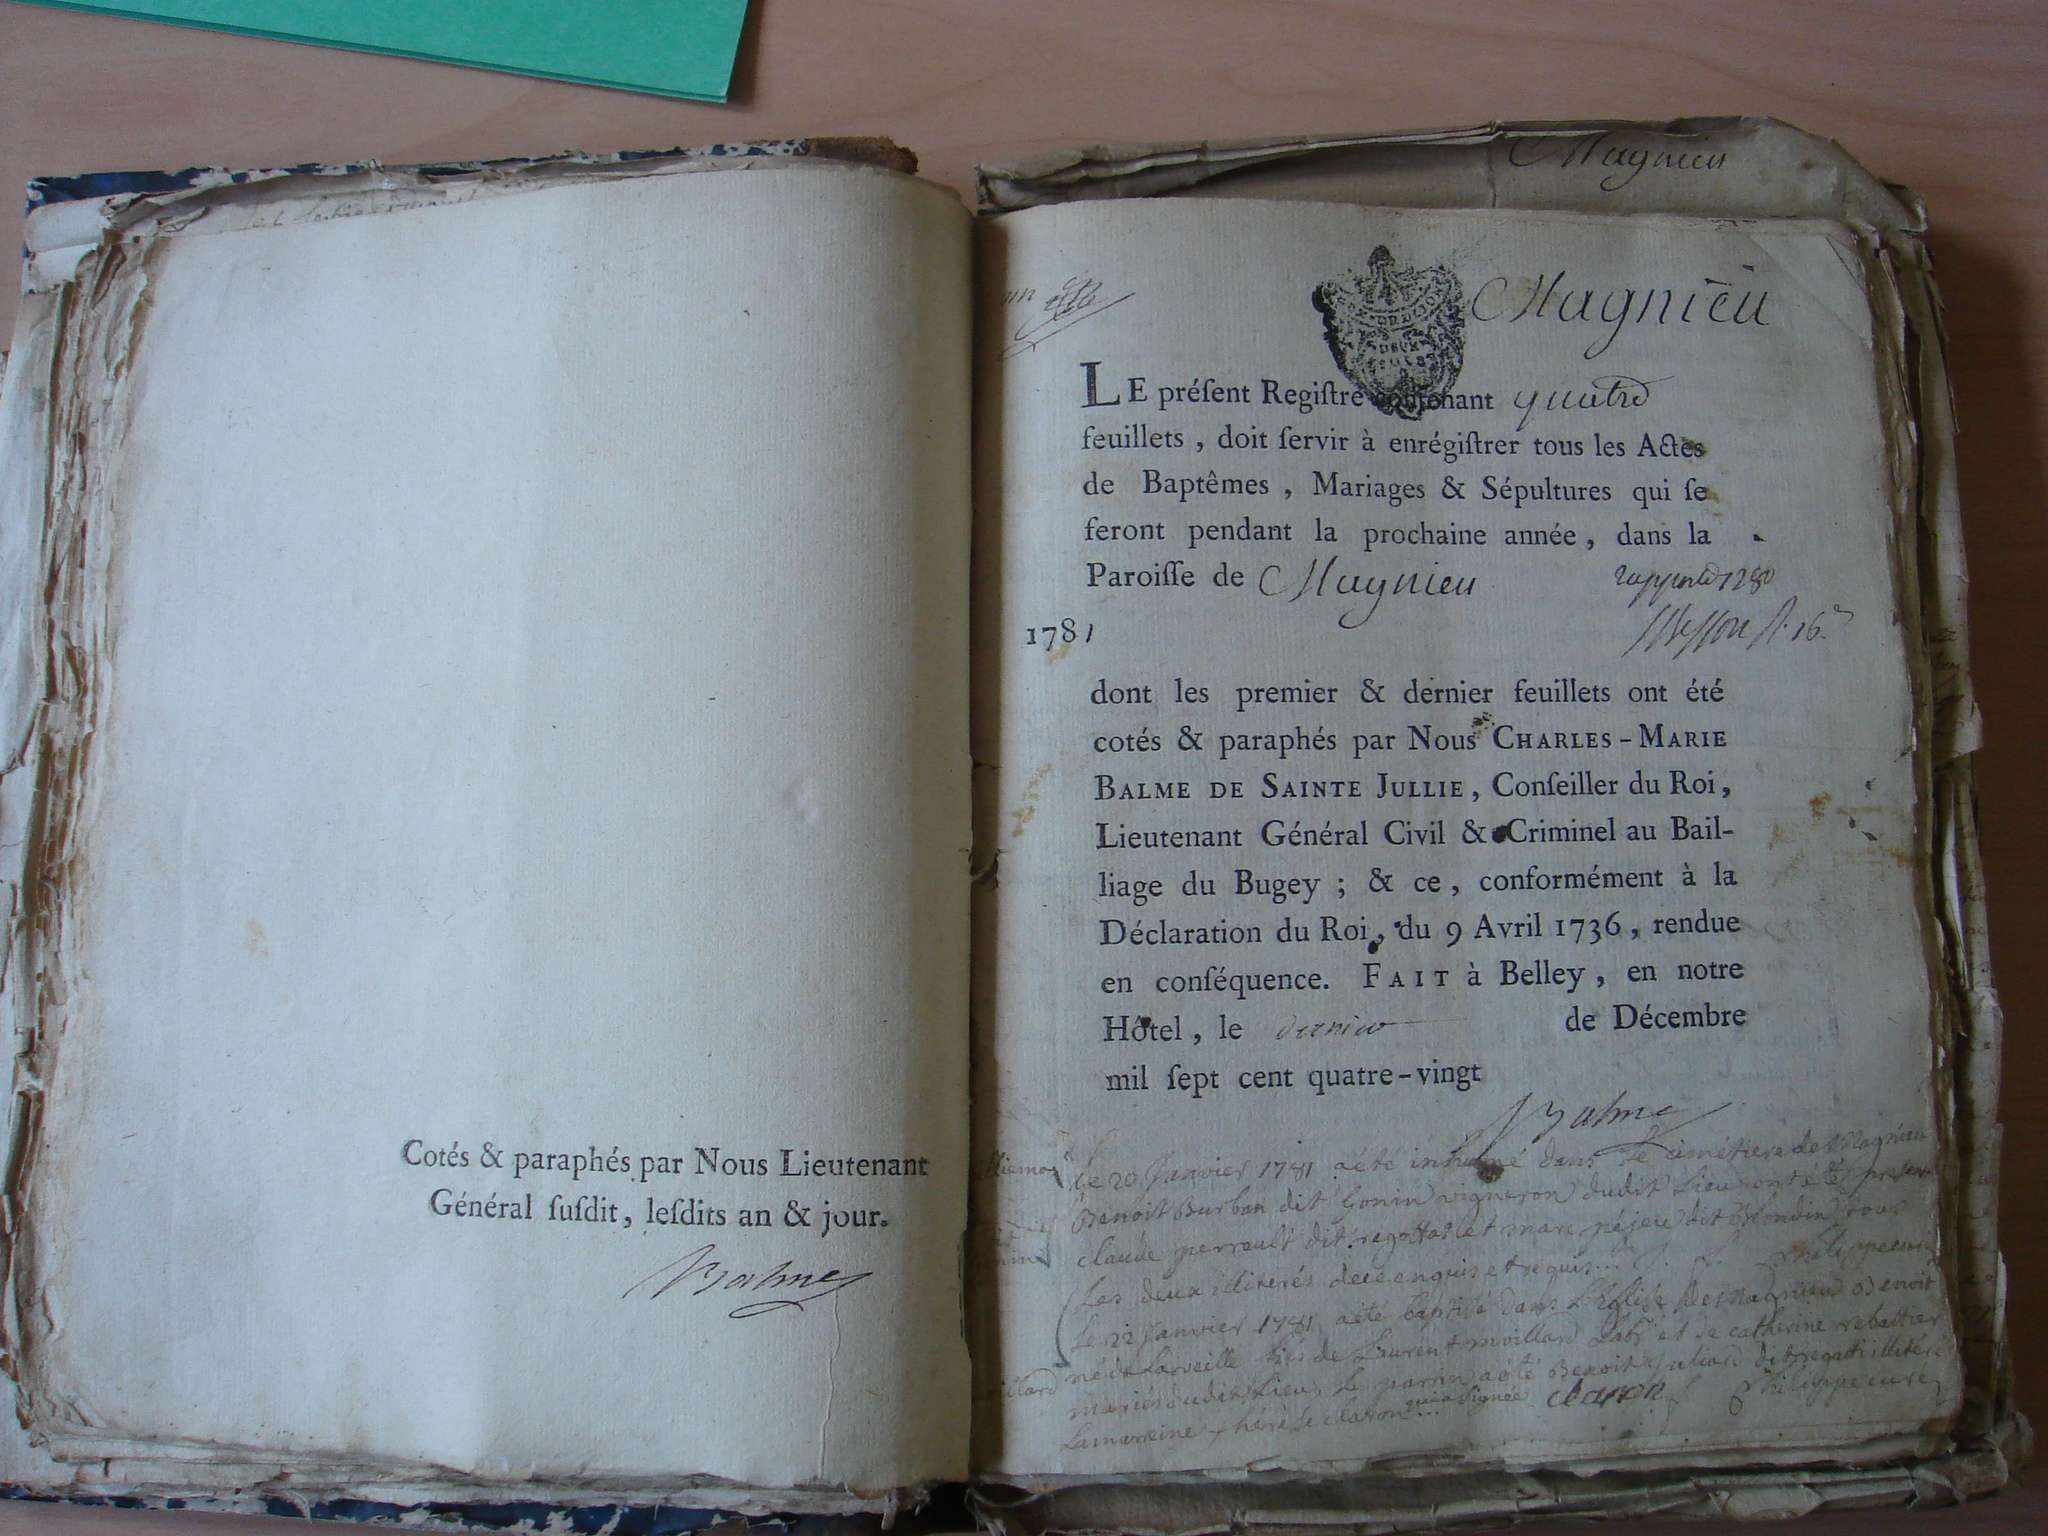 Cotés & paraphés par Nous Lieutenant
Général ſuſdit, leſdits an & jour.
Balme
Magnieu
Magnieu
LE préſent Regiſtre contenant quatre
feuillets, doit ſervir à enrégiſtrer tous les Actes
de Baptêmes, Mariages & Sépultures qui ſe
feront pendant la prochaine année, dans la
Paroiſſe de Magnieu
1781
dont les premier & dernier feuillets ont été
cotés & paraphés par Nous CHARLES-MARIE
BALME DE SAINTE JULLIE, Conſeiller du Roi,
Lieutenant Général Civil & Criminel au Bail-
liage du Bugey ; & ce, conformément à la
Déclaration du Roi, du 9 Avril 1736, rendue
en conſéquence. FAIT à Belley, en notre
Hôtel, le dernier de Décembre
mil ſept cent quatre-vingt
Balme
Le 20 Janvier 1781 a été inhumé dans le cimetiere de Magnieu
Benoit Burban dit Gonin vigneron dudit Lieu ont été présent
claude perrault dit et marc dit Blondin tous
Les deux illiterés de ce enquis et requis... Philippe curé
Le 22 Janvier 1781 a été baptisé dans L'Eglise de Magnieu Benoit
né de Larveille fils de Laurent moillard Labr et de catherine rebattier
mariés dudit Lieu, le parrin a été Benoit Juliard dit illitéré
La marreine therese claron qui a signée claron Philippe curé